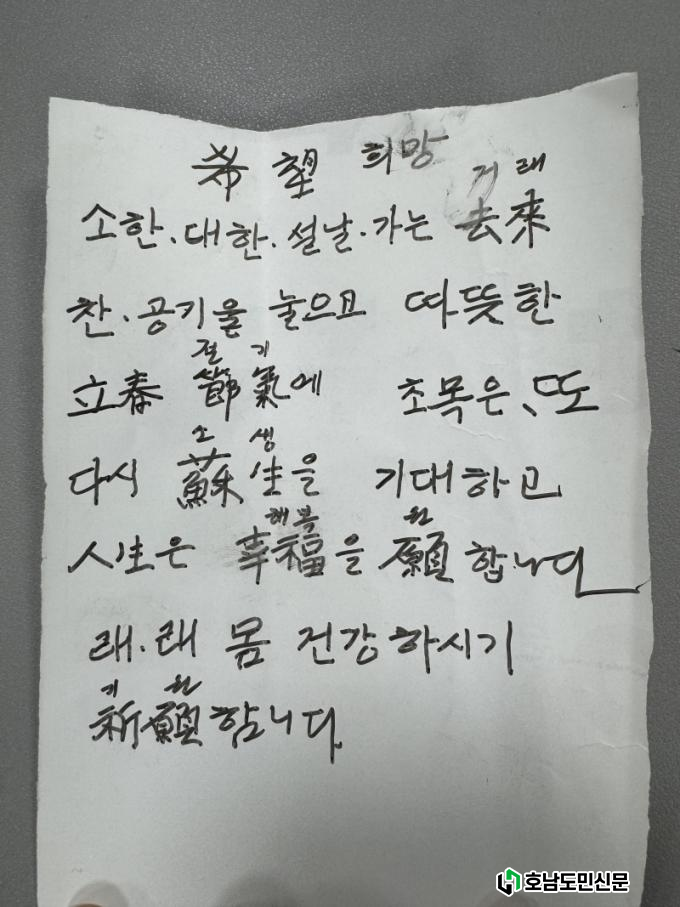 希望 희망
거래
소한.대한.설날.가는 去來
찬.공기을 눌으고 따뜻한
절기
立春 節氣에 초목은、또
소생
다시 蘇生을 기대하고
행복 원
人生은 幸福을 願합니다
래.래 몸 건강하시기
기원
祈願합니다.
호남도민신문